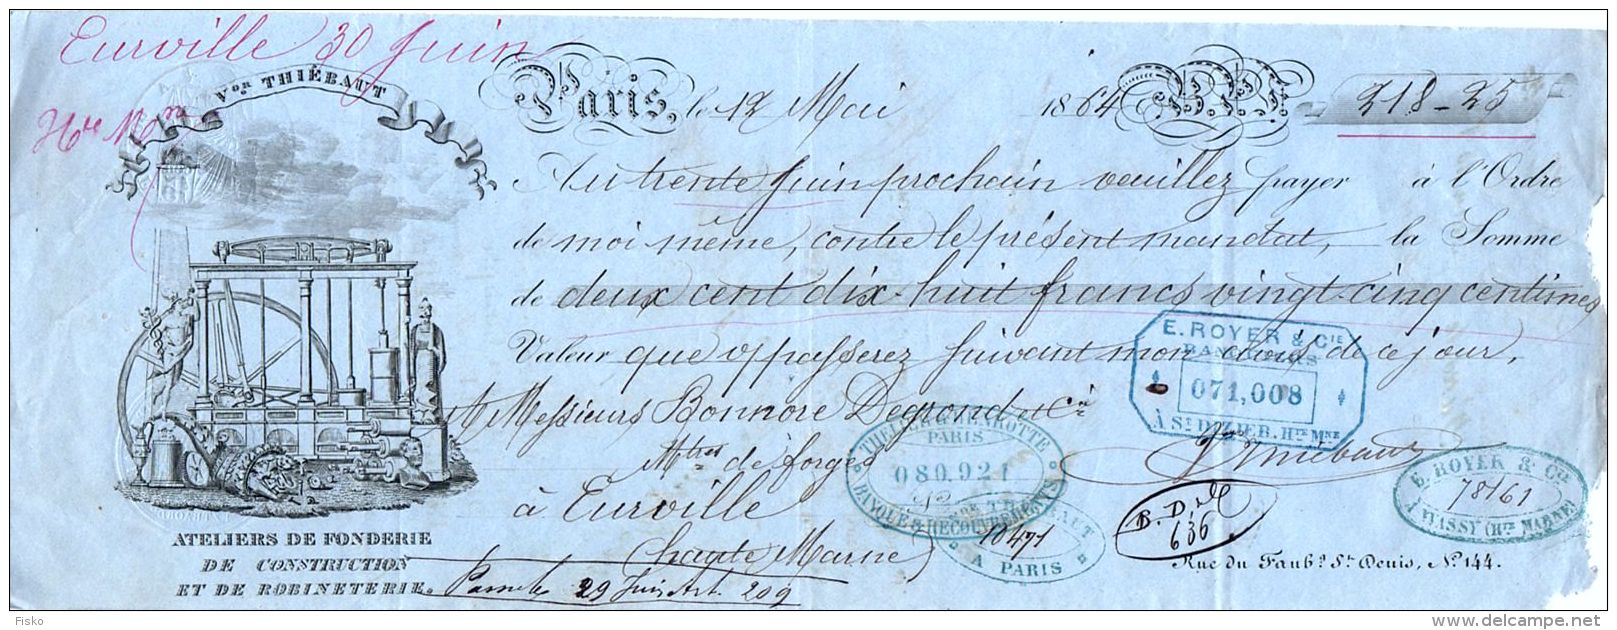 Eurville 30 Juin
Hte Mne
Vor THIÉBAUT
Paris, le 12 Mai 1864 B.P.F. 218-25
Au trente Juin prochain veuillez payer à l'Ordre
de moi même, contre le présent mandat, la Somme
de deux cent dix-huit francs vingt-cinq centimes
Valeur que vous passerez suivant mon avis de ce jour,
A Messieurs Bonnore Degrond et Cie
Mtres de forges
à Eurville
(Haute Marne)
29 Juin Art. 209
E. ROYER & CIE
BANQUIERS
071,008
À ST DIZIER. HTE MNE
PARIS
080.921
BANQUE & RECOUVREMENTS
10471
A PARIS
V. Thiébaut
B. D.
636
E. ROYER & CIE
78161
À WASSY (HTE MARNE)
ATELIERS DE FONDERIE
DE CONSTRUCTION
ET DE ROBINETERIE.
Rue du Faubg. St. Denis, No. 144.
Fisko
delcampe.net